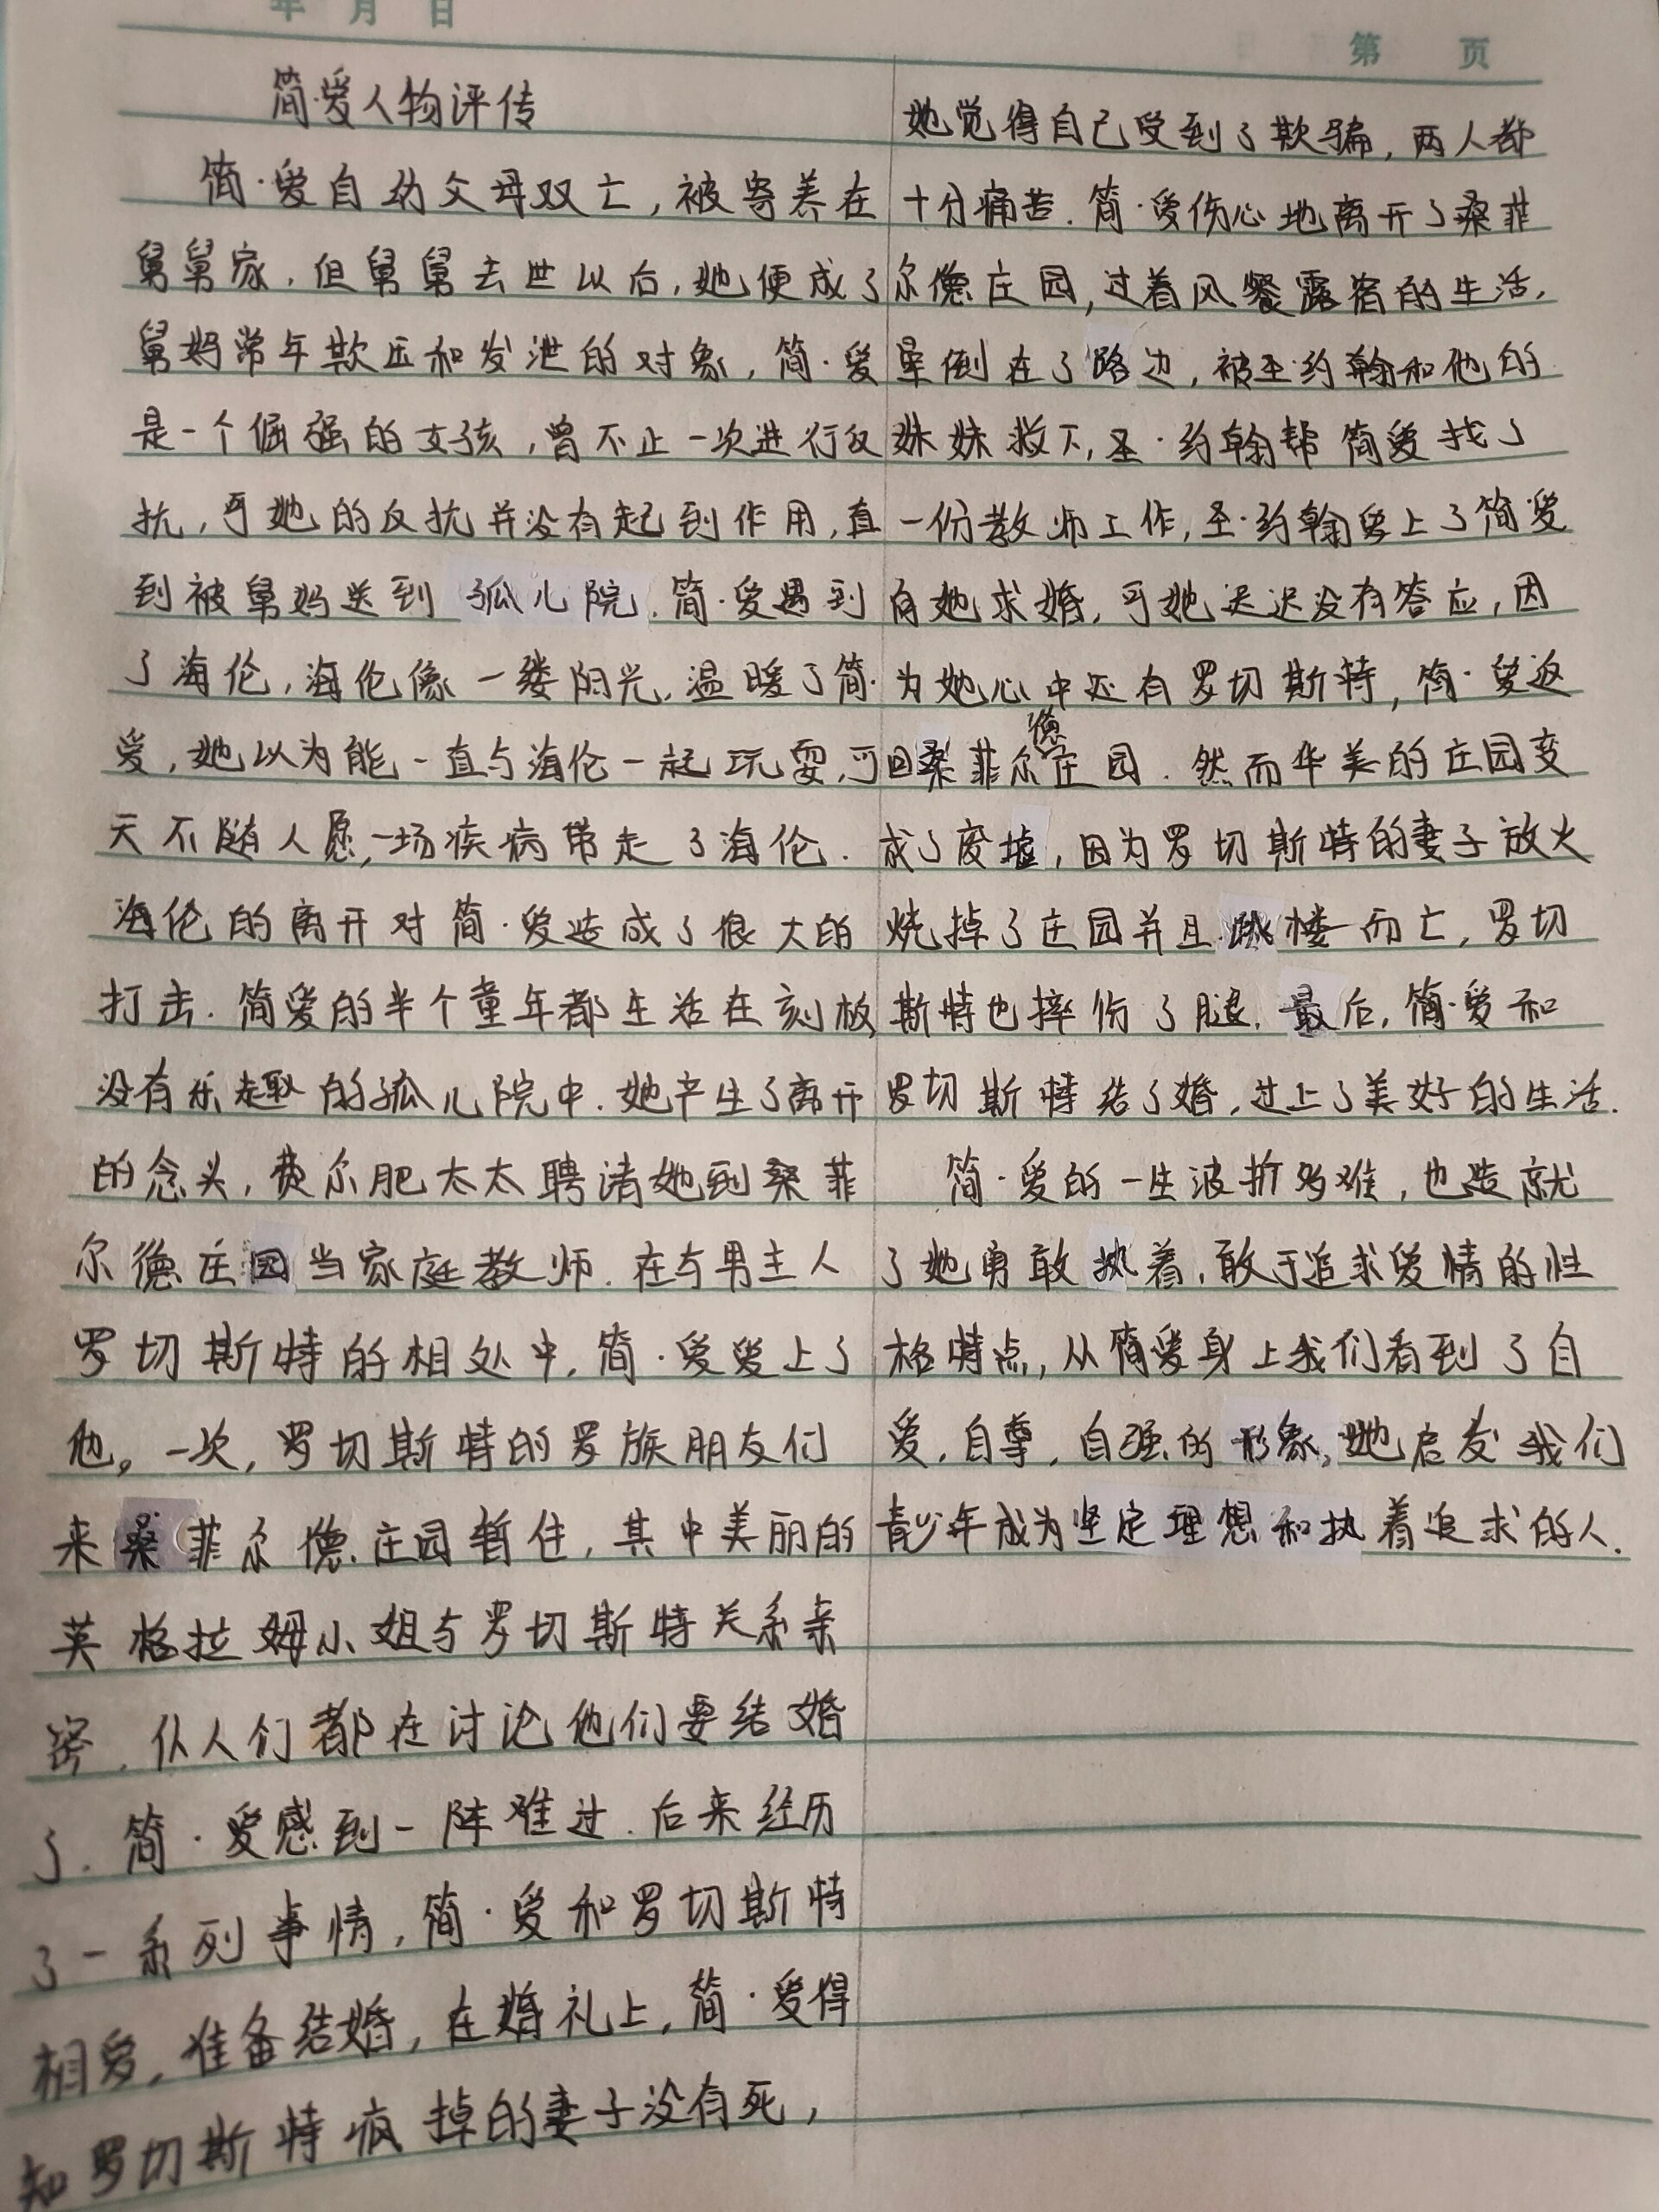 年 月 日
第 页
简·爱人物评传
简·爱自幼父母双亡，被寄养在
舅舅家，但舅舅去世以后，她便成了
舅妈常年欺压和发泄的对象，简·爱
是一个倔强的女孩，曾不止一次进行反
抗，可她的反抗并没有起到作用，直
到被舅妈送到孤儿院．简·爱遇到
了海伦，海伦像一缕阳光，温暖了简·
爱，她以为能一直与海伦一起玩耍，可
天不随人愿，一场疾病带走了海伦．
海伦的离开对简·爱造成了很大的
打击．简爱的半个童年都生活在刻板，
没有乐趣的孤儿院中．她产生了离开
的念头，费尔肥太太聘请她到桑菲
尔德庄园当家庭教师．在与男主人
罗切斯特的相处中，简·爱爱上了
他。一次，罗切斯特的罗族朋友们
来桑菲尔德庄园暂住，其中美丽的
英格拉姆小姐与罗切斯特关系亲
密．仆人们都在讨论他们要结婚
了．简·爱感到一阵难过．后来经历
了一系列事情，简·爱和罗切斯特
相爱，准备结婚，在婚礼上，简·爱得
知罗切斯特疯掉的妻子没有死，
她觉得自己受到了欺骗，两人都
十分痛苦．简·爱伤心地离开了桑菲
尔德庄园，过着风餐露宿的生活，
晕倒在了路边，被圣·约翰和他的
妹妹救下，圣·约翰帮简爱找了
一份教师工作，圣·约翰爱上了简·爱
向她求婚，可她迟迟没有答应，因
为她心中还有罗切斯特，简·爱返
回桑菲尔德庄园．然而华美的庄园变
成了废墟，因为罗切斯特的妻子放火
烧掉了庄园并且跳楼而亡，罗切
斯特也摔伤了腿．最后，简·爱和
罗切斯特结了婚，过上了美好的生活．
简·爱的一生波折多难，也造就
了她勇敢执着，敢于追求爱情的性
格特点，从简爱身上我们看到了自
爱，自尊，自强的形象，她启发我们
青少年成为坚定理想和执着追求的人．